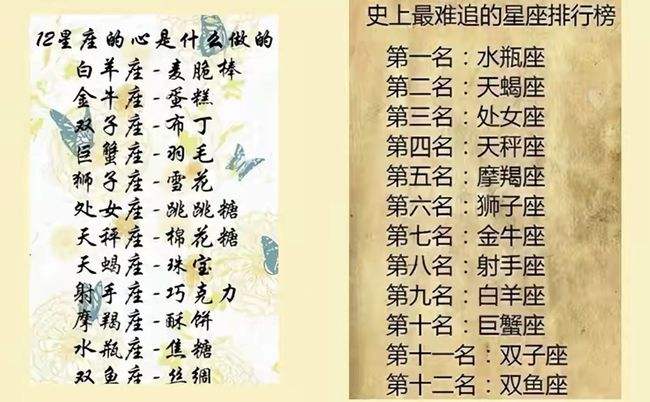 12星座的心是什么做的
白羊座-麦脆棒
金牛座-蛋糕
双子座-布丁
巨蟹座-羽毛
狮子座-雪花
处女座-跳跳糖
天秤座-棉花糖
天蝎座-珠宝
射手座-巧克力
摩羯座-酥饼
水瓶座-焦糖
双鱼座-丝绸
史上最难追的星座排行榜
第一名：水瓶座
第二名：天蝎座
第三名：处女座
第四名：天秤座
第五名：摩羯座
第六名：狮子座
第七名：金牛座
第八名：射手座
第九名：白羊座
第十名：巨蟹座
第十一名：双子座
第十二名：双鱼座